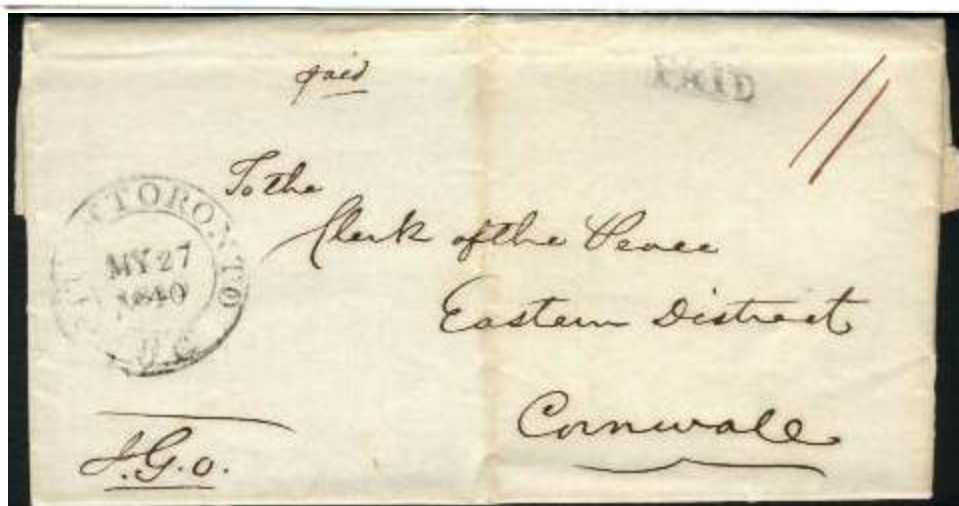 paid
PAID
11
To the
Clerk of the Peace
Eastern District
Cornwall
TORONTO
MY 27
1840
U.C
I.G.O.